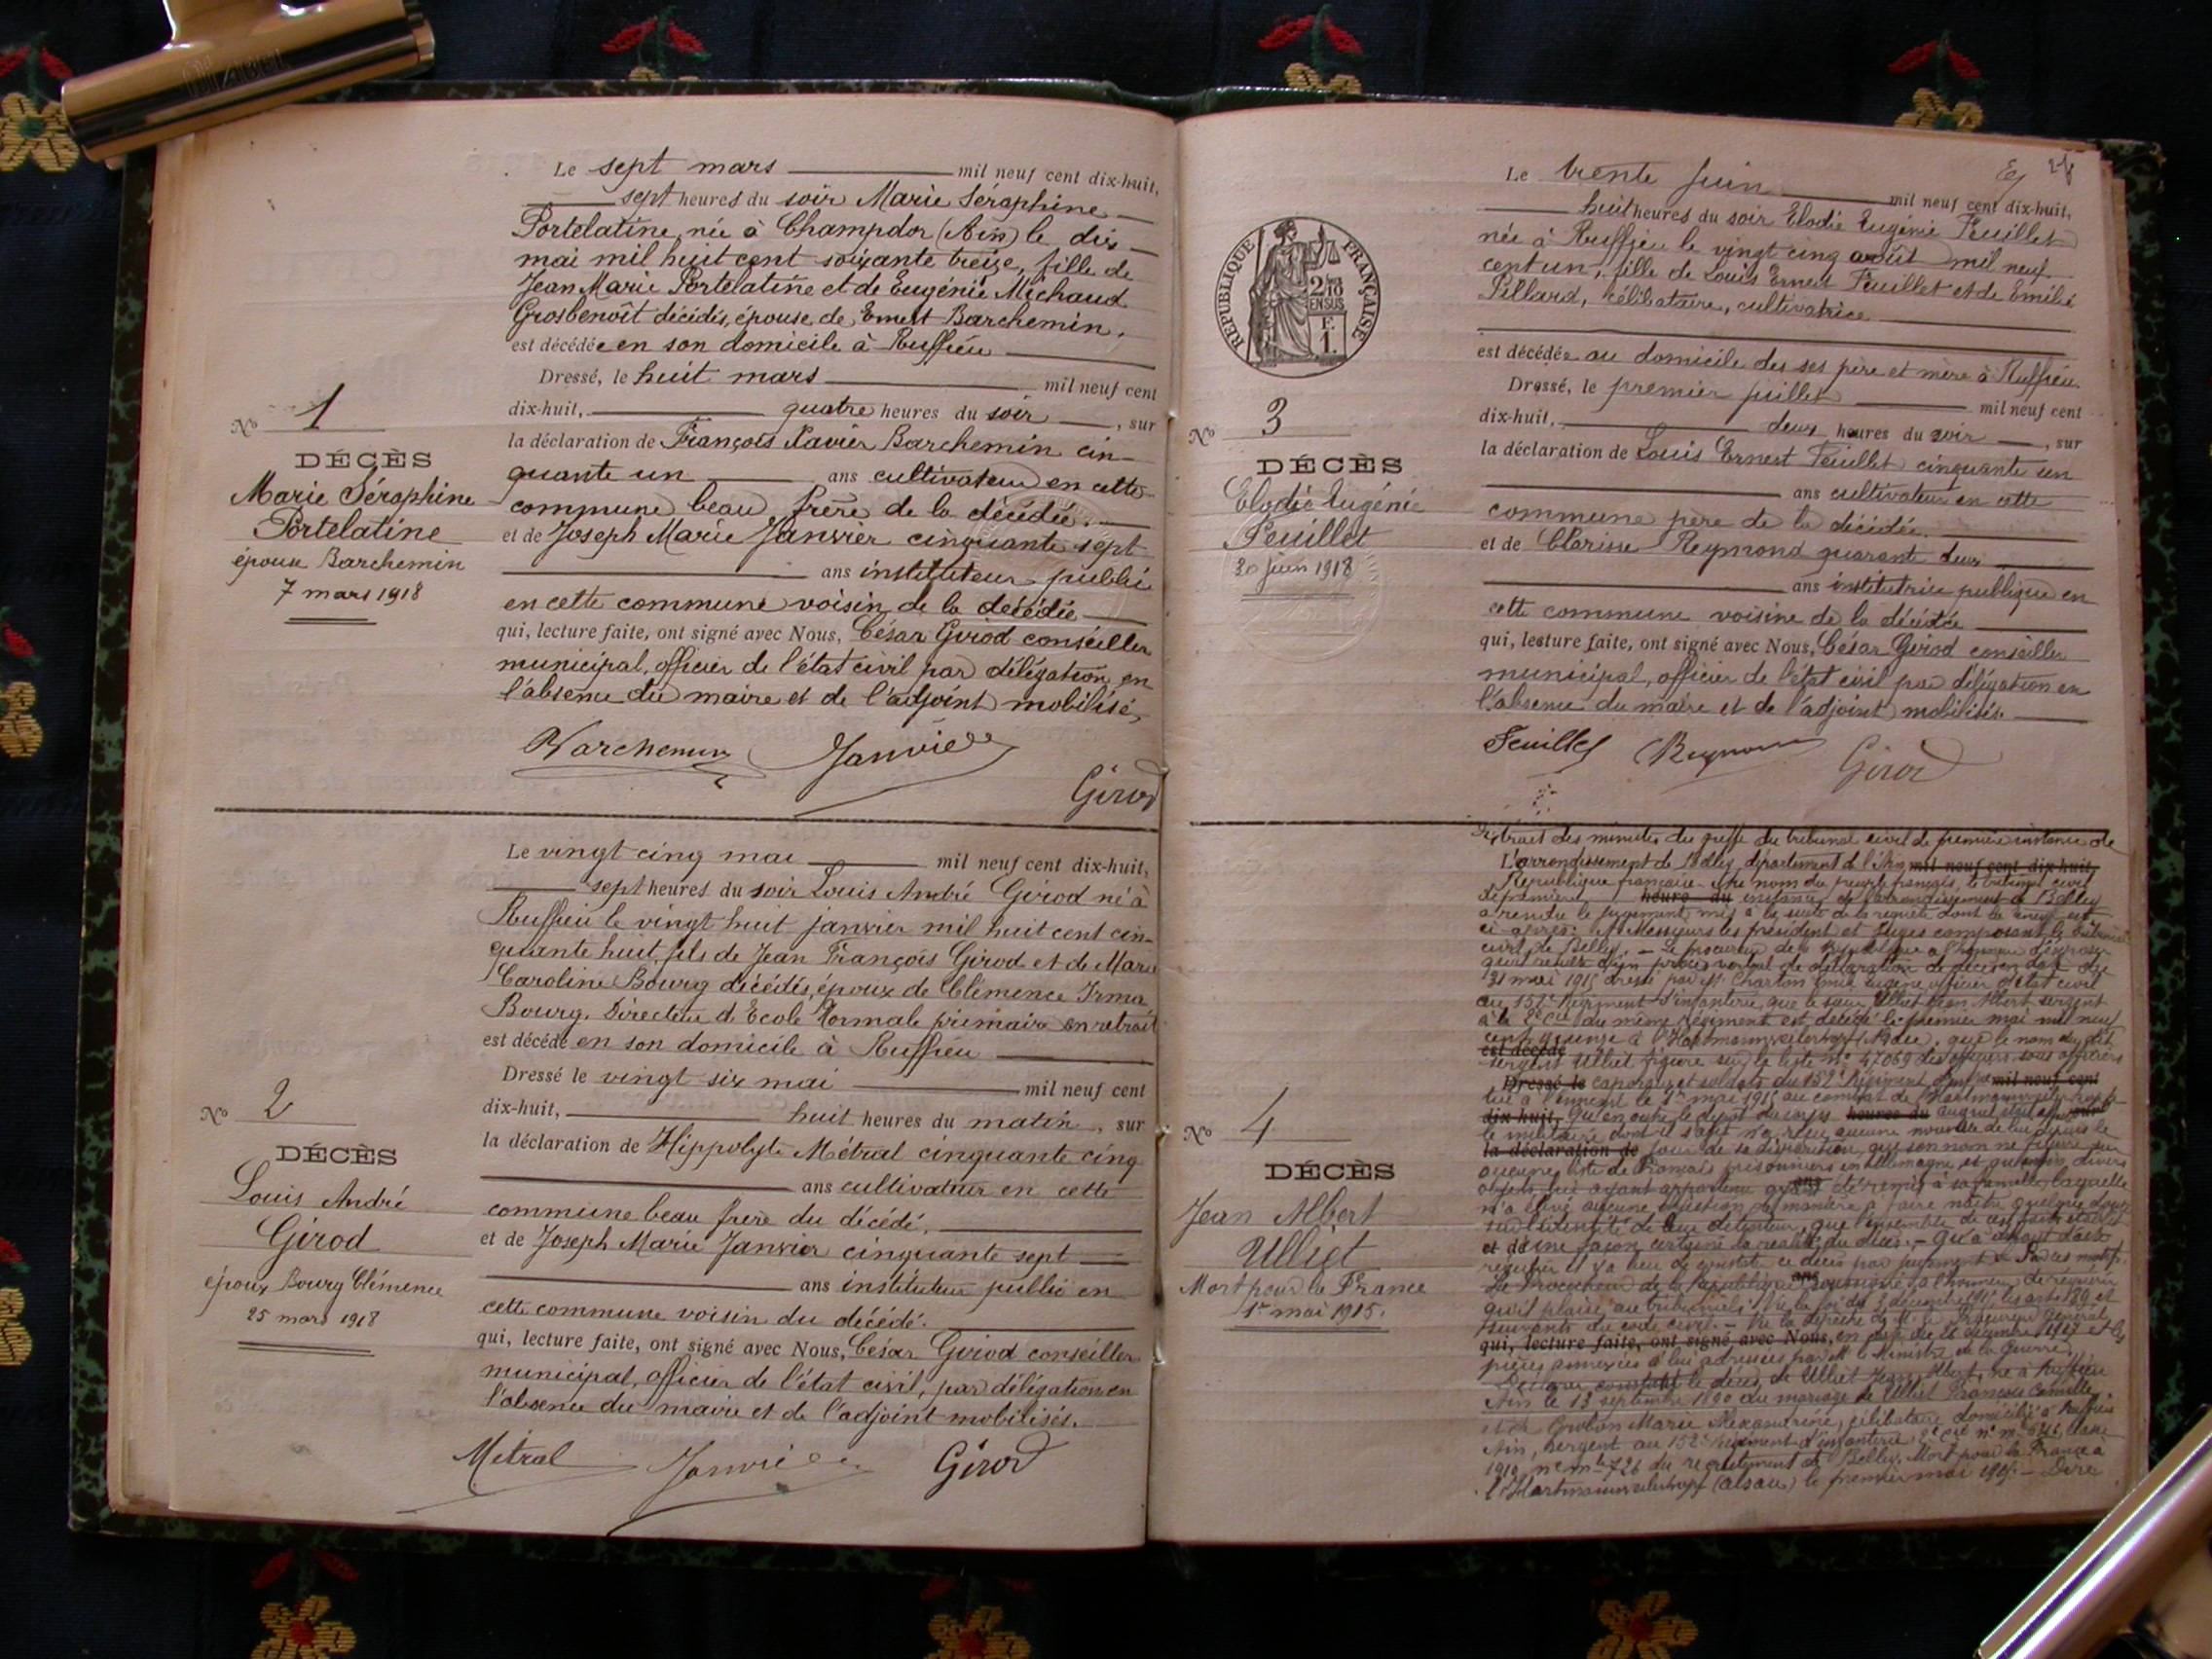 Le sept mars mil neuf cent dix-huit,
sept heures du soir Marie Séraphine
Portelatine, née à Champdor (Ain) le dix
mai mil huit cent soixante treize, fille de
Jean Marie Portelatine et de Eugénie Michaud
Grosbenoît décédés, épouse de Ernest Barchemin.
est décédée en son domicile à Ruffieu
Dressé, le huit mars mil neuf cent
dix-huit, quatre heures du soir, sur
la déclaration de François Xavier Barchemin cin-
quante un ans cultivateur en cette
commune beau frère de la décédée.
et de Joseph Marie Janvier cinquante sept
ans instituteur public
en cette commune voisin de la décédée
qui, lecture faite, ont signé avec Nous, César Girod conseiller
municipal, officier de l'état civil par délégation en
l'absence du maire et de l'adjoint mobilisé,
Barchemin Janvier
Girod
No 1
DÉCÈS
Marie Séraphine
Portelatine
épouse Barchemin
7 mars 1918
Le vingt cinq mai mil neuf cent dix-huit,
sept heures du soir Louis André Girod né à
Ruffieu le vingt huit janvier mil huit cent cin-
quante huit, fils de Jean François Girod et de Marie
Caroline Bourg décédés, époux de Clémence Irma
Bourg. Directeur d'Ecole Normale primaire en retrait
est décédé en son domicile à Ruffieu
Dressé le vingt six mai mil neuf cent
dix-huit, huit heures du matin, sur
la déclaration de Hippolyte Métral cinquante cinq
ans cultivateur en cette
commune beau frère du décédé.
et de Joseph Marie Janvier cinquante sept
ans instituteur public en
cette commune voisin du décédé.
qui, lecture faite, ont signé avec Nous, César Girod conseiller
municipal, officier de l'état civil, par délégation en
l'absence du maire et de l'adjoint mobilisés.
Métral Janvier Girod
No 2
DÉCÈS
Louis André
Girod
époux Bourg Clémence
25 mars 1918
28
Le trente juin mil neuf cent dix-huit,
huit heures du soir Elodie Eugénie Feuillet
née à Ruffieu le vingt cinq août mil neuf
cent un, fille de Louis Ernest Feuillet et de Emilie
Pillard, célibataire, cultivatrice
est décédée au domicile des ses père et mère à Ruffieu
Dressé, le premier juillet mil neuf cent
dix-huit, deux heures du soir, sur
la déclaration de Louis Ernest Feuillet cinquante un
ans cultivateur en cette
commune père de la décédée.
et de Clarisse Reymond quarant deux
ans institutrice publique en
cette commune voisine de la décédée
qui, lecture faite, ont signé avec Nous, César Girod conseiller
municipal, officier de l'état civil par délégation en
l'absence du maire et de l'adjoint mobilisés.
Feuillet Reymond Girod
REPUBLIQUE FRANÇAISE
2/10
EN SUS
F.
1.
No 3
DÉCÈS
Elodie Eugénie
Feuillet
30 juin 1918
Extrait des minutes du greffe du tribunal civil de première instance de
L'arrondissement de Belley, département de l'Ain mil neuf cent dix-huit,
République française. Au nom du peuple français, le tribunal civil
de première heure du instance de l'arrondissement de Belley
a rendu le jugement mis à la suite de la requête dont la teneur est
ci-après: A Messieurs les président et Juges composant le tribunal
civil de Belley. - Le procureur de la République a l'honneur d'exposer
qu'il résulte d'un procès verbal de déclaration de décès en date du
31 mai 1915 dressé par Mr Charton Emile Eugène officier d'état civil
au 152e Régiment d'infanterie, que le sieur Ulliet Jean Albert sergent
à la 2e Cie du même régiment est décédé le premier mai mil neuf
cent quinze à l'Hartmannswillerkopf que le nom du dit
est décédé
sergent Ulliet figure sur la liste no 47069 des officiers sous officiers
Dressé le caporaux et soldats du 152e Régiment d'infie mil neuf cent
tué à l'ennemi le 1er mai 1915 au combat de
dix-huit, Qu'en outre le dépôt du corps heures du auquel était affecté
le militaire dont il s'agit n'a reçu aucune nouvelle de lui depuis le
la déclaration de jour de sa disparition, que son nom ne figure sur
aucune liste de Français prisonniers en Allemagne et qu'enfin divers
objets lui ayant appartenu ayant été remis à sa famille, laquelle
n'a élevé aucune question de manière à faire naître quelque doute
sur l'identité de leur détenteur, que l'ensemble de ces faits établit
et de une façon certaine la réalité du décès.
requérir il y a lieu de constater ce décès par jugement. Par ces motifs.
Le Procureur de la République soussigné a l'honneur de requérir
qu'il plaise au tribunal. Vu la loi du 3 décembre 1915, les arts 89 et
suivants du code civil. - Vu la dépêche de M. le Procureur Général
qui, lecture faite, ont signé avec Nous, en date du 26 décembre 1917 et les
pièces annexées à lui adressées par M. le Ministre de la Guerre.
Déclarer constant le décès de Ulliet Jean Albert, né à Ruffieu
Ain le 13 septembre 1890 du mariage de Ulliet François Camille
et de Grobon Marie Alexandrine, célibataire domicilié à Ruffieu
Ain, sergent au 152e Régiment d'infanterie, 2e Cie classe
1910, no mle 726 du recrutement de Belley. Mort pour la France à
l'Hartmannswillerkopf (Alsace) le premier mai 1915. - Dire
No 4
DÉCÈS
Jean Albert
Ulliet
Mort pour la France
1er mai 1915.